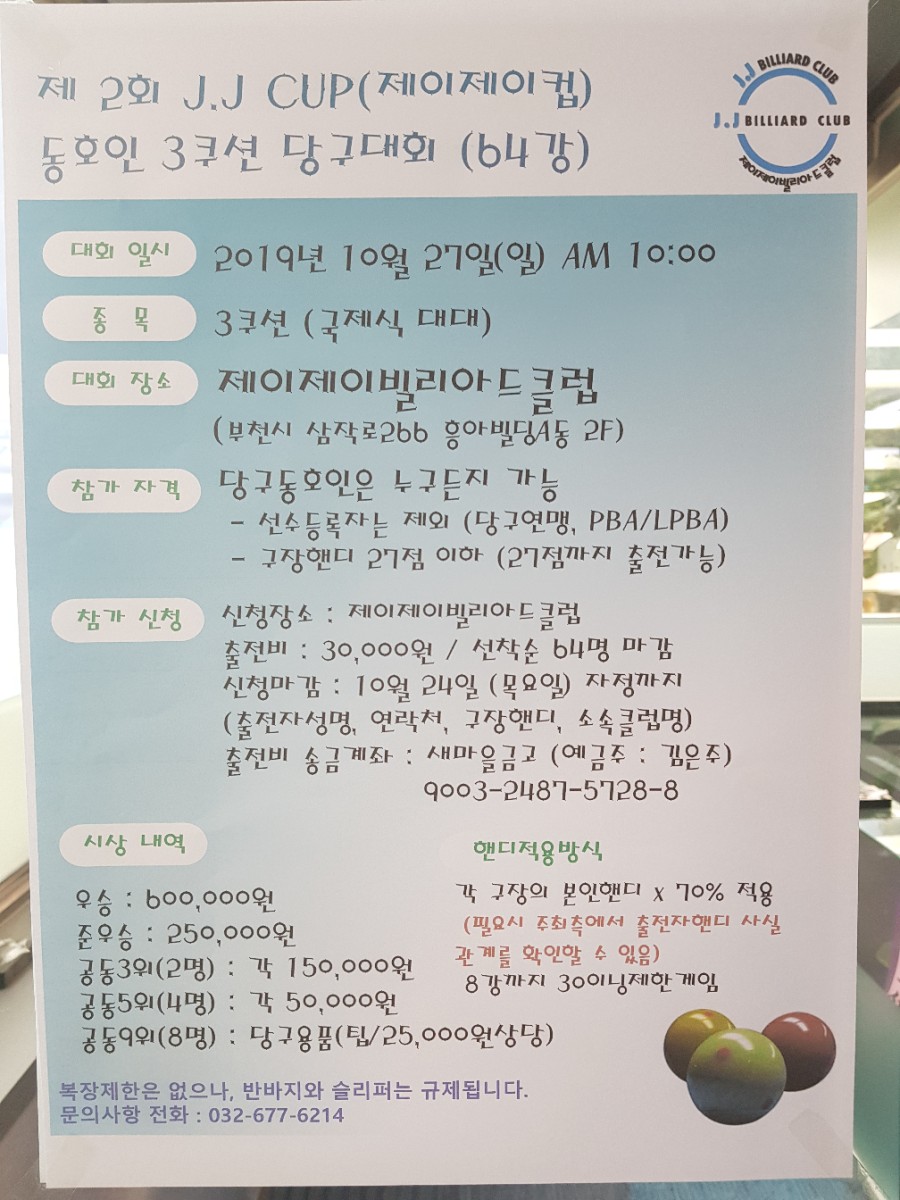 제 2회 J.J CUP(제이제이컵)
동호인 3쿠션 당구대회 (64강)
J.J BILLIARD CLUB
J.J BILLIARD CLUB
제이제이빌리아드클럽
대회 일시 2019년 10월 27일(일) AM 10:00
종 목 3쿠션 (국제식 대대)
대회 장소 제이제이빌리아드클럽
(부천시 삼작로266 흥아빌딩A동 2F)
참가 자격 당구동호인은 누구든지 가능
- 선수등록자는 제외 (당구연맹, PBA/LPBA)
- 구장핸디 27점 이하 (27점까지 출전가능)
참가 신청 신청장소 : 제이제이빌리아드클럽
출전비 : 30,000원 / 선착순 64명 마감
신청마감 : 10월 24일 (목요일) 자정까지
(출전자성명, 연락처, 구장핸디, 소속클럽명)
출전비 송금계좌 : 새마을금고 (예금주 : 김은주)
9003-2487-5728-8
시상 내역
우승 : 600,000원
준우승 : 250,000원
공동3위(2명) : 각 150,000원
공동5위(4명) : 각 50,000원
공동9위(8명) : 당구용품(팁/25,000원상당)
핸디적용방식
각 구장의 본인핸디 x 70% 적용
(필요시 주최측에서 출전자핸디 사실
관계를 확인할 수 있음)
8강까지 30이닝제한게임
복장제한은 없으나, 반바지와 슬리퍼는 규제됩니다.
문의사항 전화 : 032-677-6214